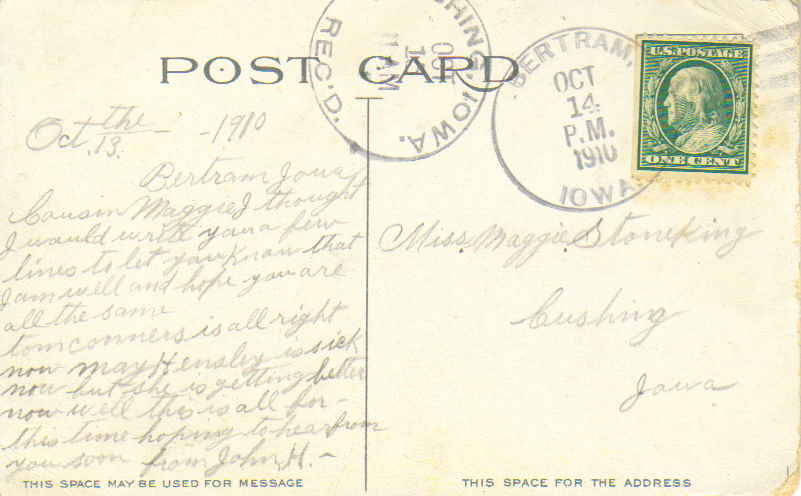 POST CARD
CUSHING, IOWA.
OCT
11 AM
REC'D.
BERTRAM,
OCT
14
P.M.
1910
IOWA.
U.S. POSTAGE
ONE CENT
Oct. the 13. - -1910
Bertram Iowa
Cousin Maggie I thought
I would write you a few
lines to let you know that
I am well and hope you are
all the same
tom conners is all right
now may Hensley is sick
now but she is getting better
now well this is all for-
this time hoping to hear from
you soon from John H. -
THIS SPACE MAY BE USED FOR MESSAGE
Miss. Maggie Stoneking
Cushing
Iowa
THIS SPACE FOR THE ADDRESS